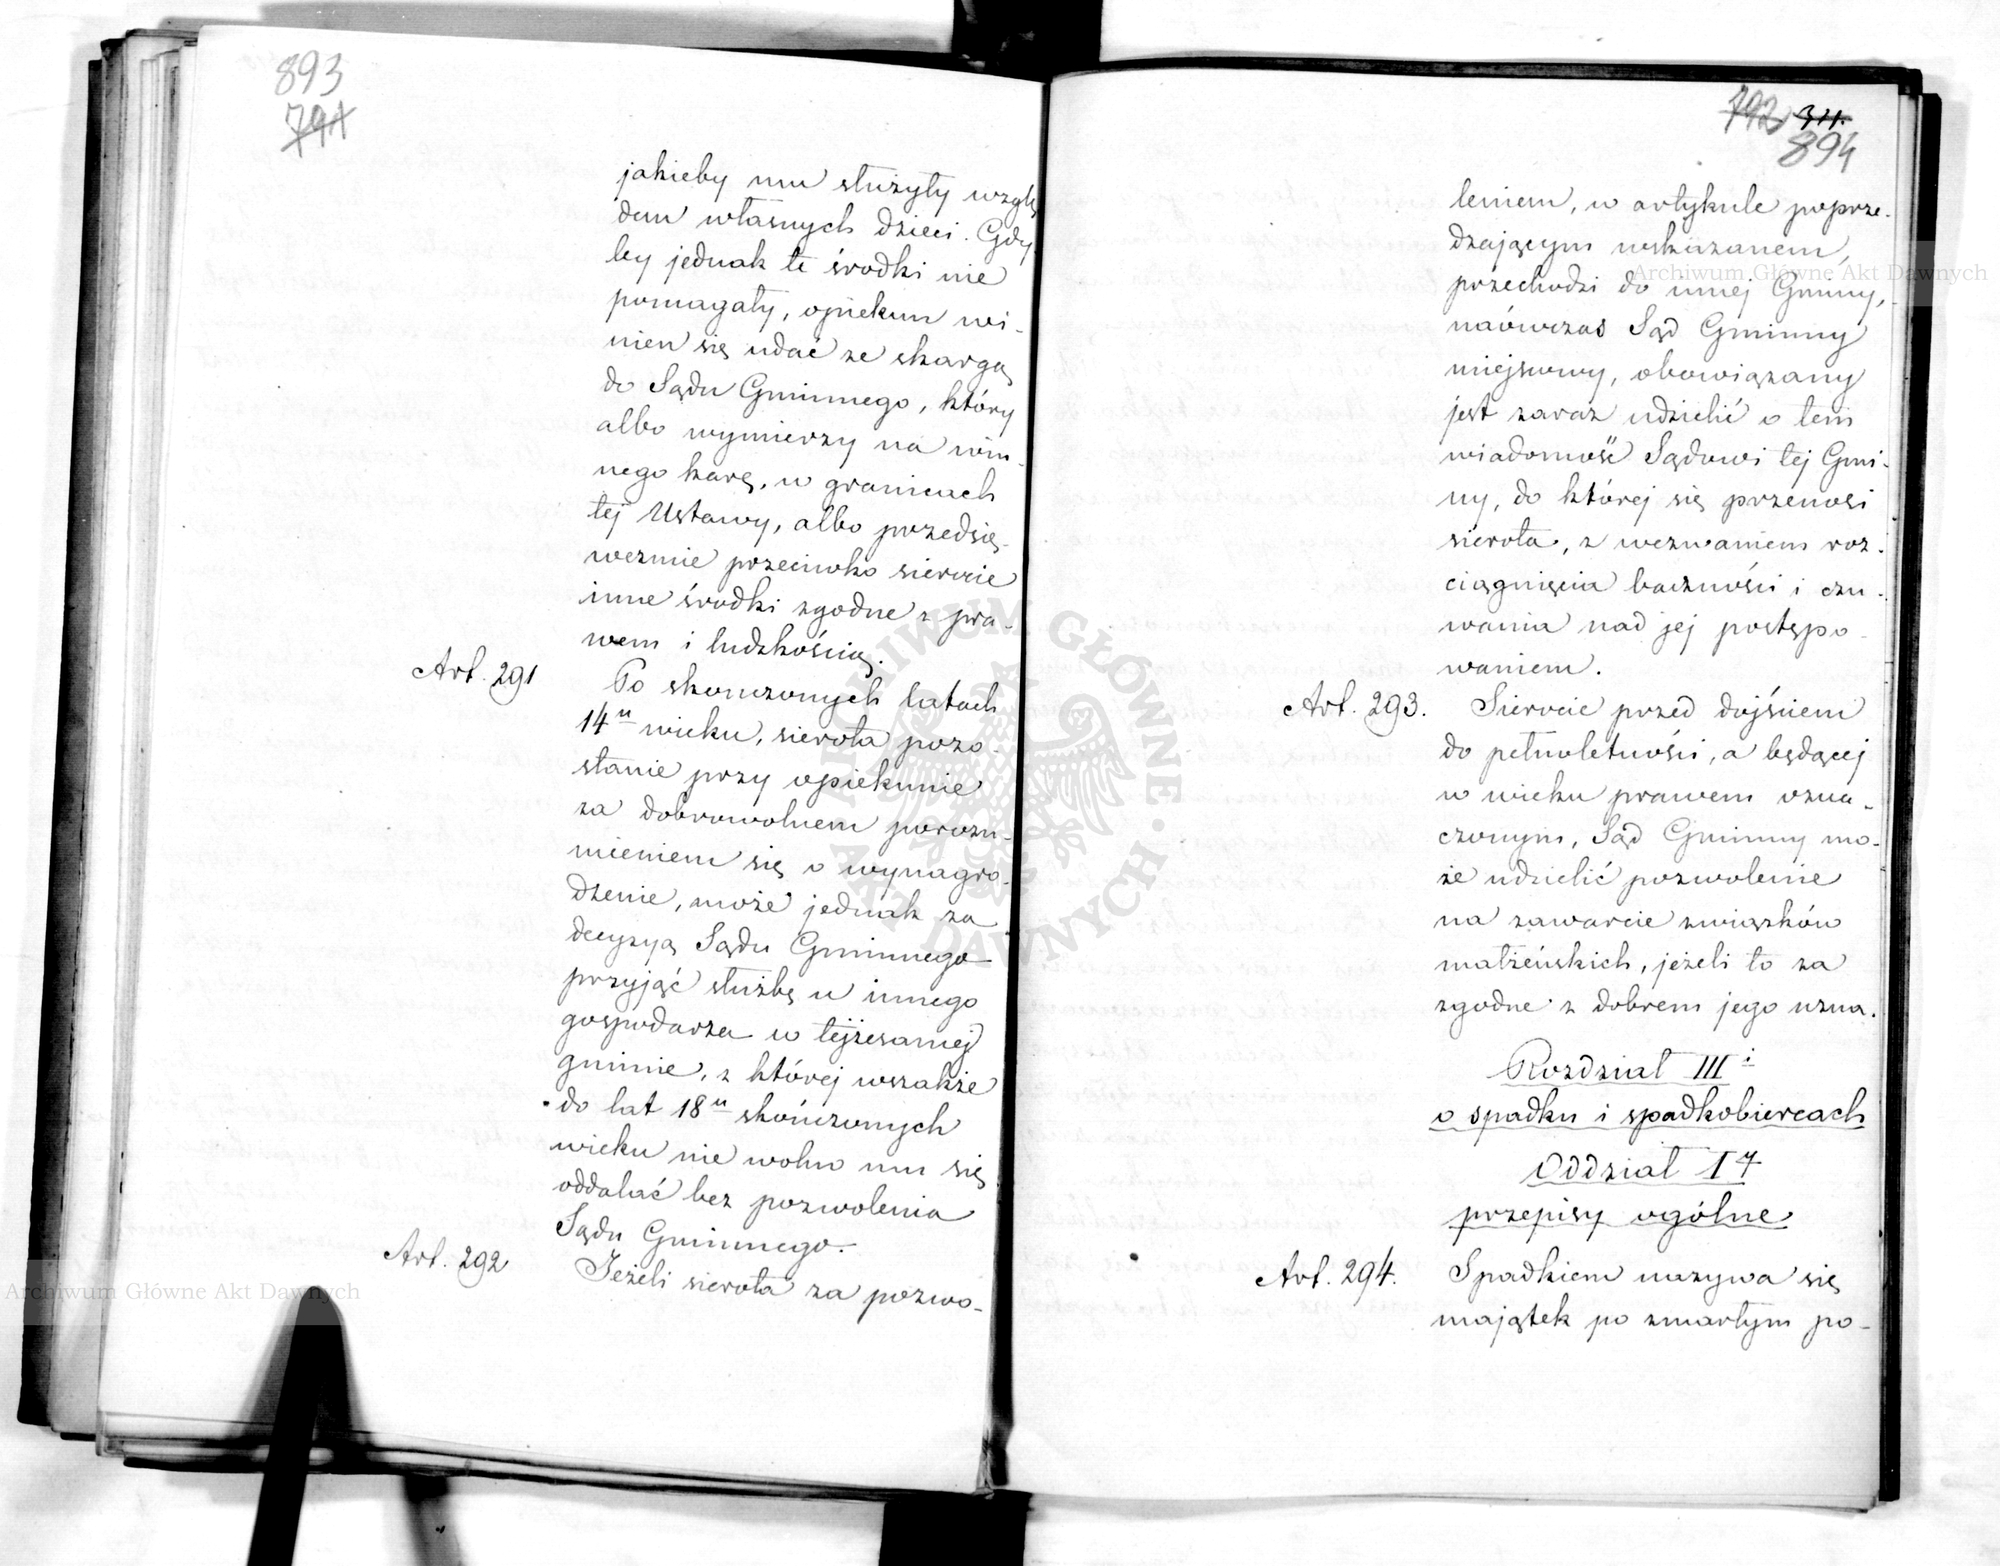 893
791
jakieby mu służyły wzglę
dem własnych dzieci. Gdy
by jednak te środki nie
pomagały, opiekun wi-
nien się udać ze skargą
do Sądu Gminnego, który
albo wymierzy na win-
nego karę, w granicach
tej Ustawy, albo przedsię-
weźmie przeciwko sierocie
inne środki zgodne z pra-
wem i ludzkością.
Art. 291
Po skończonych latach
14u wieku, sierota pozo-
stanie przy opiekunie
za dobrowolnem porozu-
mieniem się o wynagro-
dzenie, może jednak za
decyzyą Sądu Gminnego
przyjąć służbę u innego
gospodarza w tejżesamej
gminie, z której wszakże
do lat 18u skończonych
wieku nie wolno mu się
oddalać bez pozwolenia
Sądu Gminnego.
Art. 292
Jeżeli sierota za pozwo-
792 311.
894
leniem, w artykule poprze-
dzającym wskazanem,
przechodzi do innej Gminy,
naówczas Sąd Gminny
miejscowy, obowiązany
jest zaraz udzielić o tem
wiadomość Sądowi tej Gmi-
ny, do której się przenosi
sierota, z wezwaniem roz-
ciągnięcia baczności i czu-
wania nad jej postępo-
waniem.
Art. 293.
Sierocie przed dojściem
do pełnoletności, a będącej
w wieku prawem ozna-
czonym, Sąd Gminny mo-
że udzielić pozwolenie
na zawarcie związków
małżeńskich, jeżeli to za
zgodne z dobrem jego uzna.
Rozdział III i
o spadku i spadkobiercach
Oddział I y
przepisy ogólne
Art. 294.
Spadkiem nazywa się
majątek po zmarłym po-
Archiwum Główne Akt Dawnych
Archiwum Główne Akt Dawnych
ARCHIWUM GŁÓWNE · AKT DAWNYCH ·